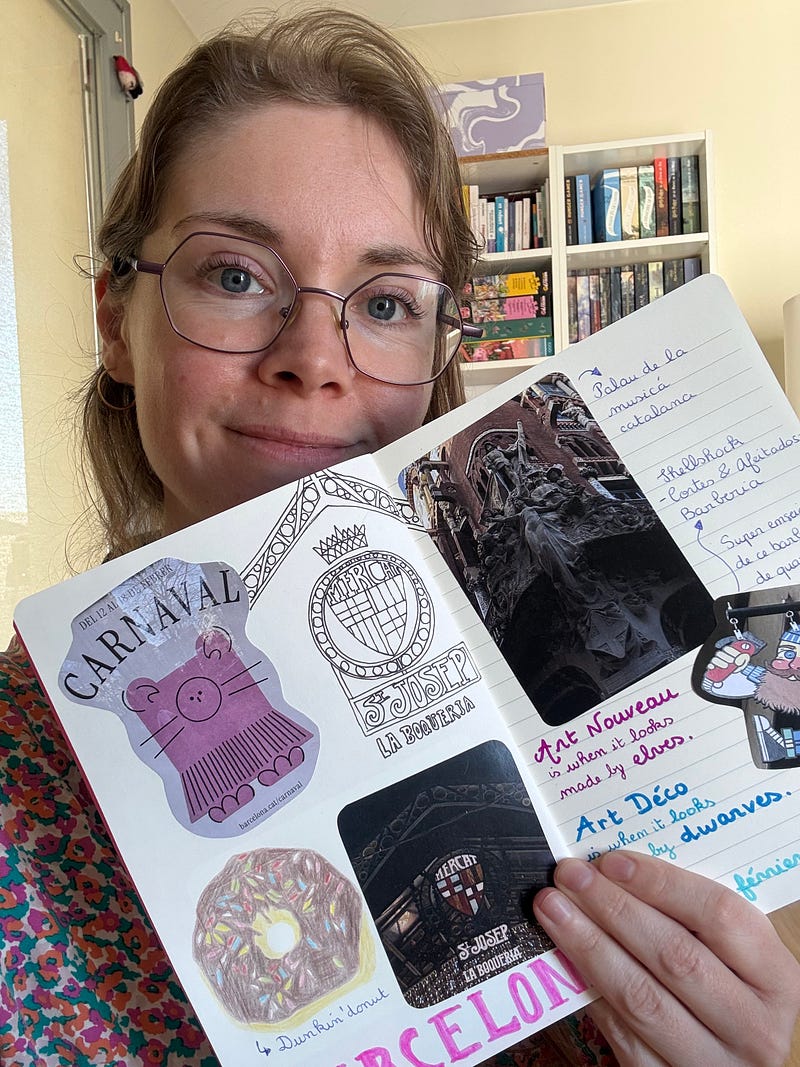 DEL 12 AL 18 DE FEBRER
CARNAVAL
barcelona.cat/carnaval
MERCAT
ST. JOSEP
LA BOQUERIA
↳ Dunkin'donut
MERCAT
ST. JOSEP
LA BOQUERIA
BARCELON
Palau de la
musicá
catalana
Shellshock
-Cortes & Afeitados
Barberia
Super
de ce
de
Art Nouveau
is when it looks
made by elves.
Art Déco
is when it looks
by dwarves.
février